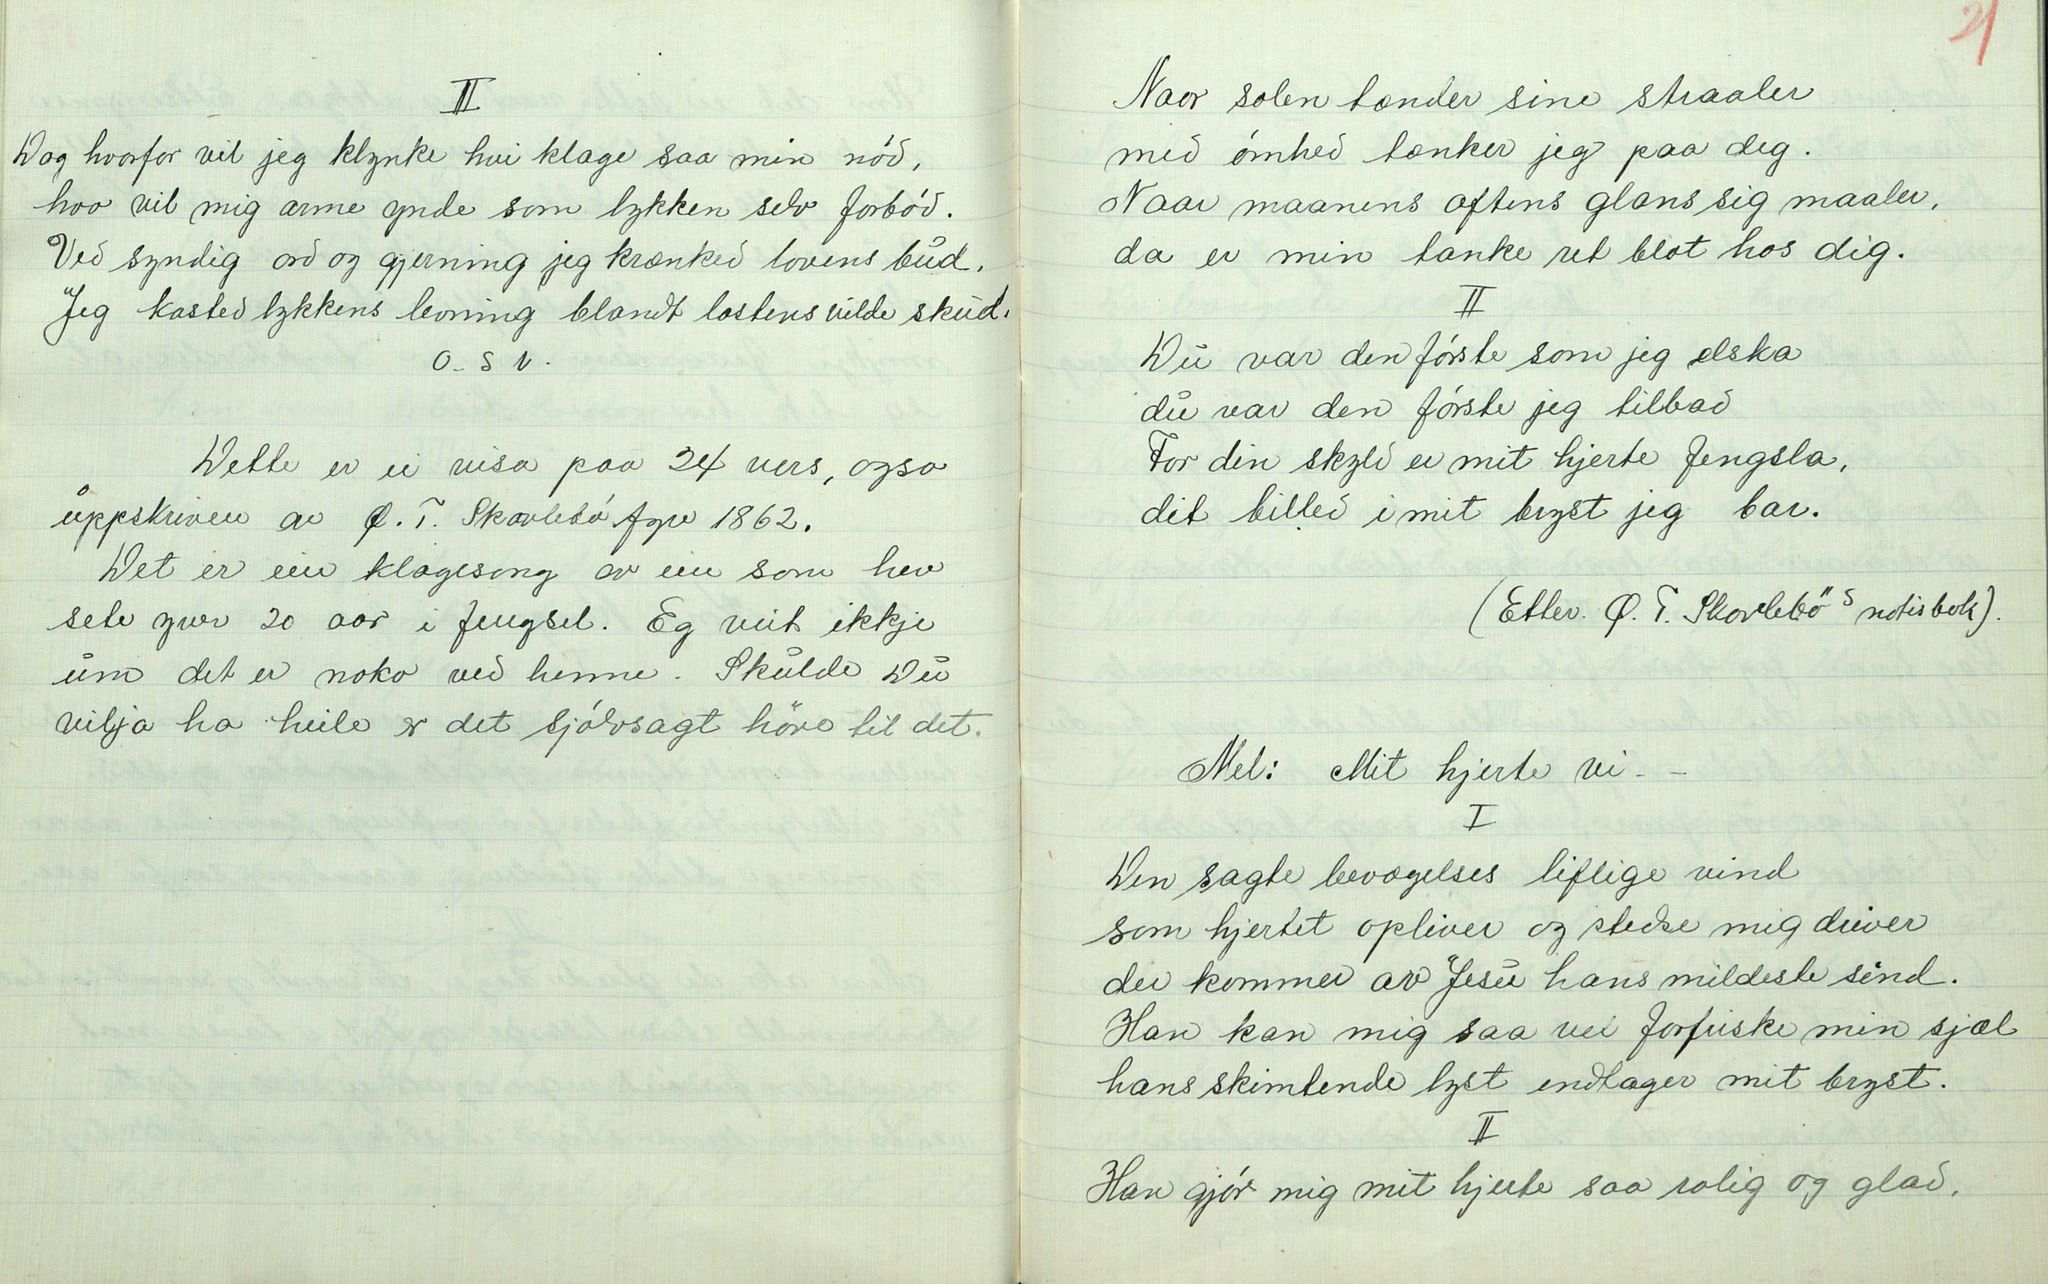 II
Dog hvorfor vil jeg klynke hvi klage saa min nód,
hvo vil mig arme ynde som lykken selv forbód.
Ved syndig ord og gjerning jeg krænked lovens bud,
Jeg kasted lykkens levning blandt lastens vilde skud.
O. S V.
Dette er ei visa paa 24 vers, ogso
uppskriven av Ø. T. Skavlebó fyre 1862.
Det er ein klagesong av ein som hev
sete yver 20 aar i fengsel. Eg veit ikkje
um det er noko ved henne. Skulde Du
vilja ha heile er det sjólvsagt høve til det.
21
Naar solen tænder sine straaler
med ómhed tænker jeg paa deg.
Naar maanens aftens glans sig maaler,
da er min tanke ret blot hos dig.
II
Du var den fórste som jeg elska
du var den fórste jeg tilbad
For din skyld er mit hjerte fengsla,
dit billed i mit bryst jeg bar.
(Etter. Ø. T. Skavlebö's notisbok).
Mel: Mit hjerte vi - -
I
Den sagte bevægelses liflige vind
som hjertet opliver og stedse mig driver
der kommer av Jesu hans mildeste sind.
Han kan mig saa vel forfriske min sjæl
hans skimtende lyst endtager mit bryst.
II
Han gjór mig mit hjerte saa rolig og glad,